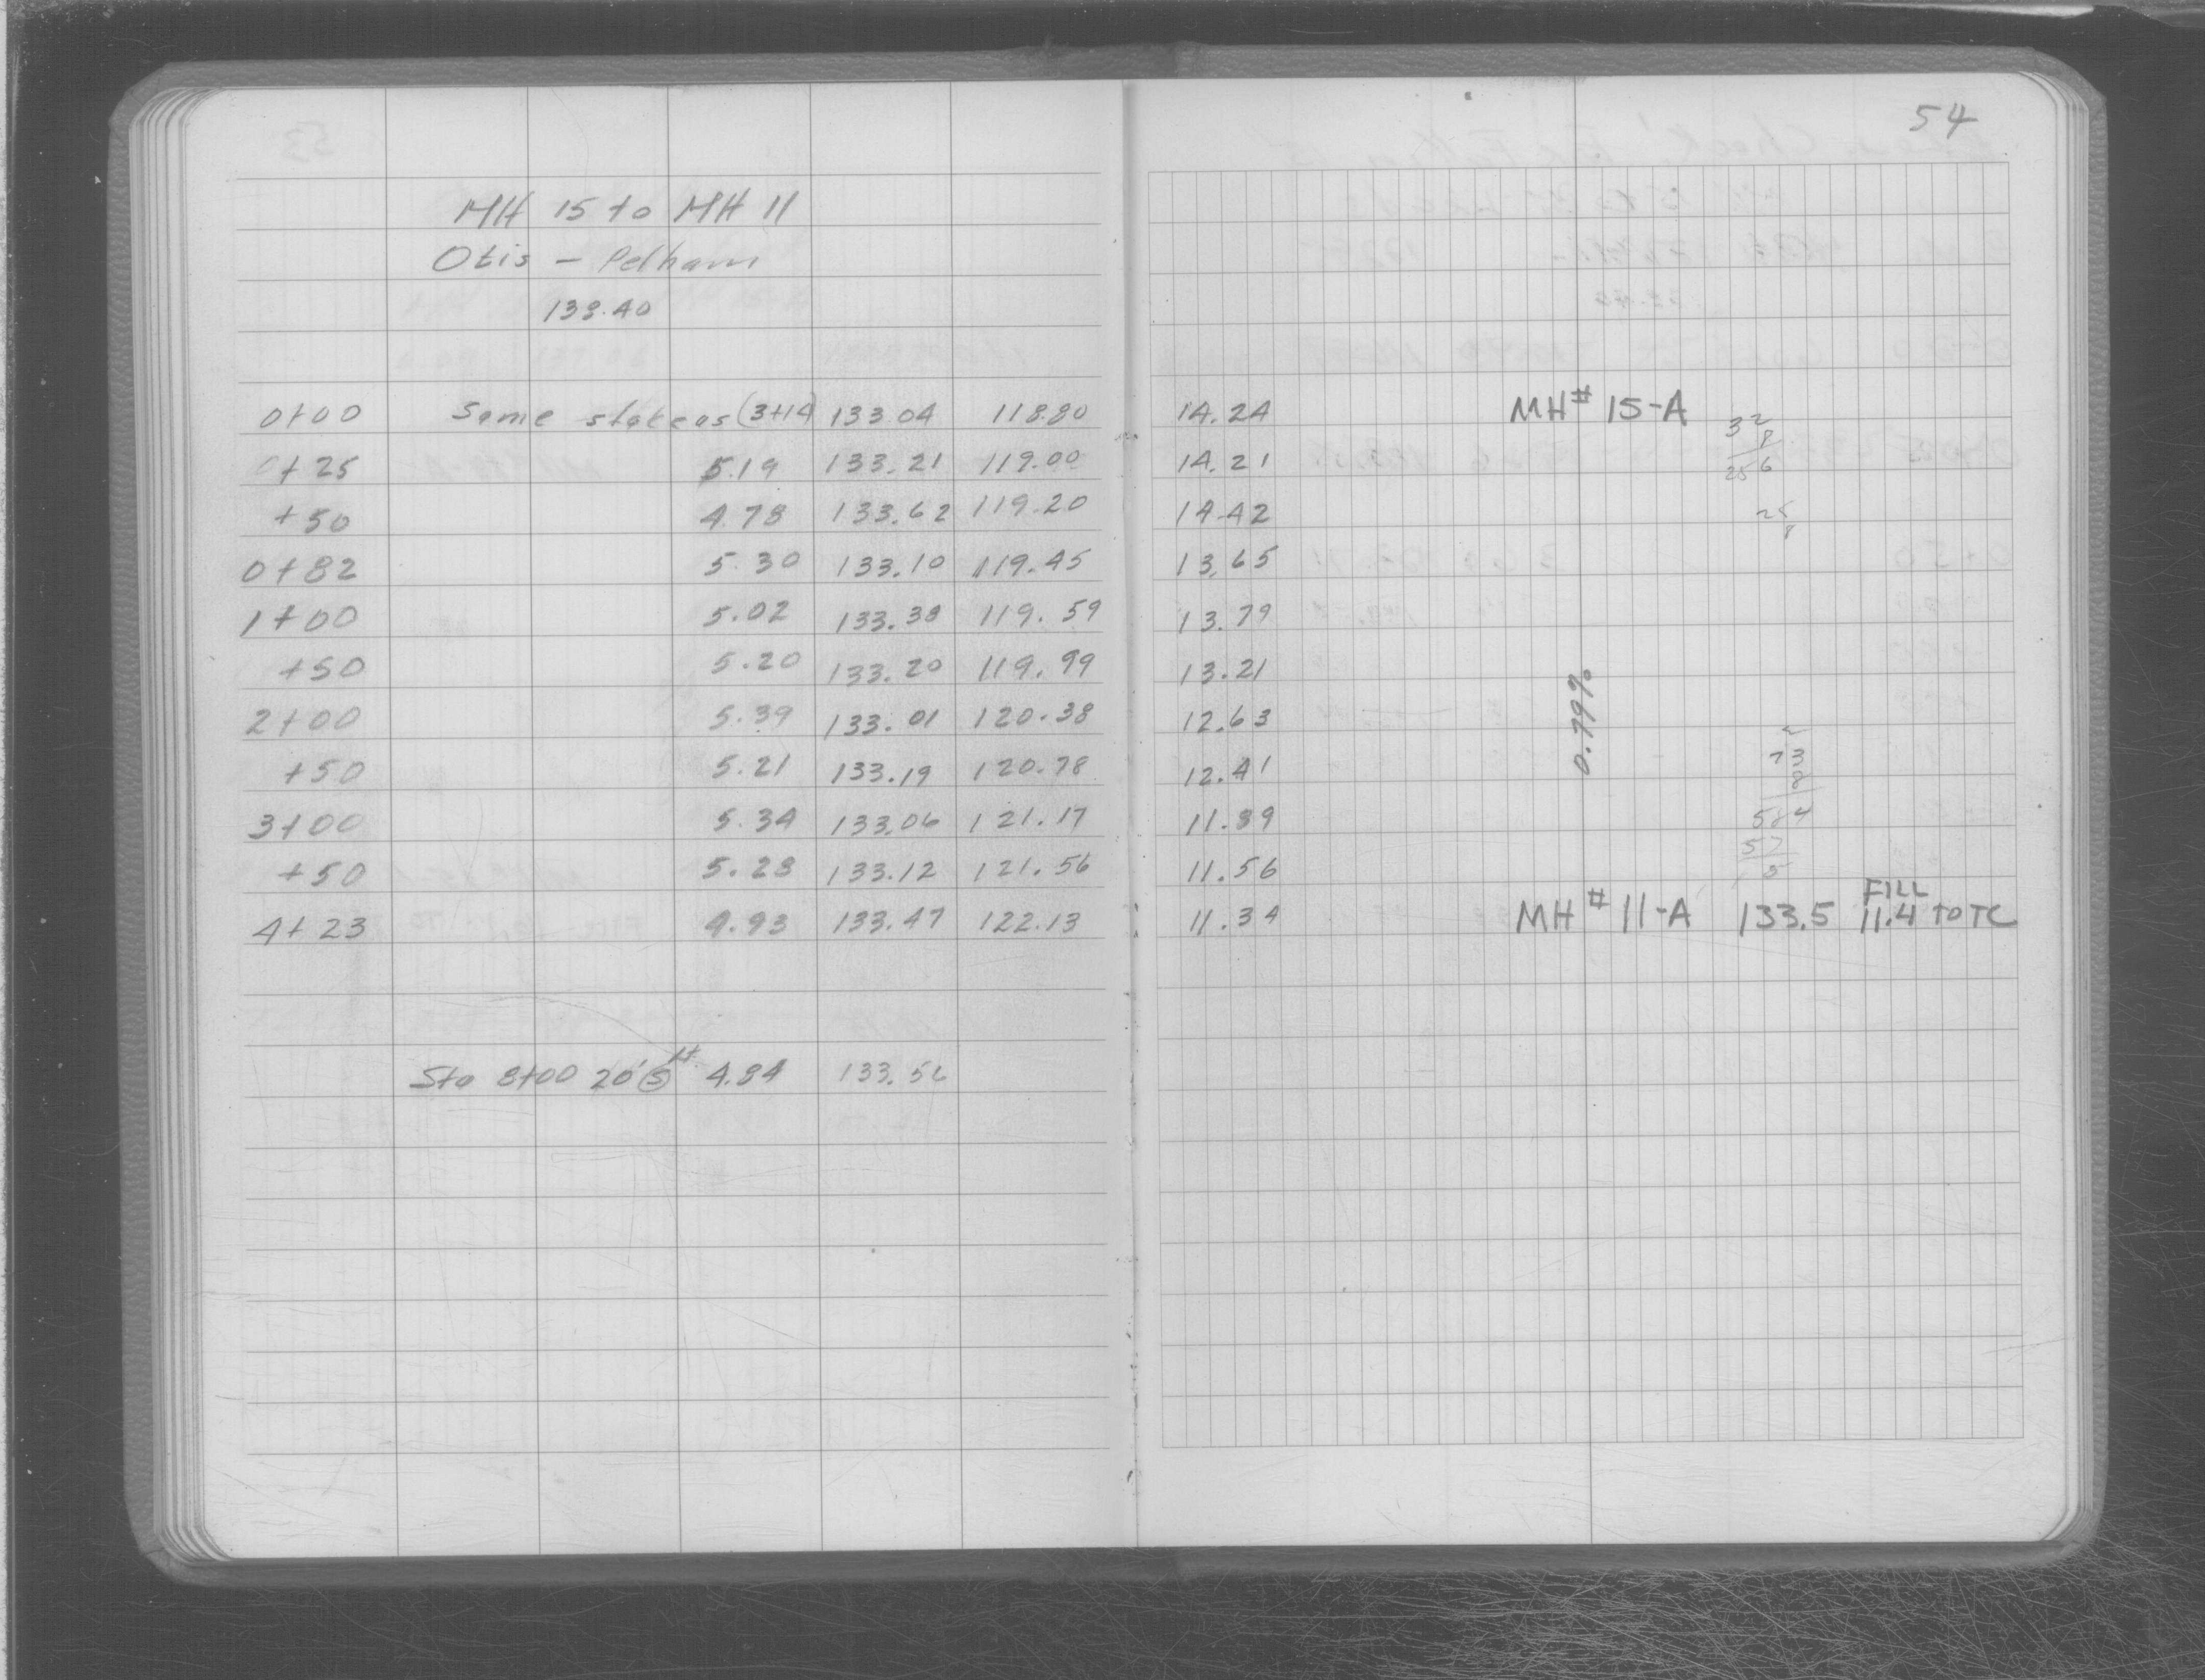 54
MH 15 to MH 11
Otis - Pelham
138.40
0+00 Same stake as (3+14) 133.04 118.80 14.24 MH# 15-A
32
8
256
0+25 5.19 133.21 119.00 14.21
+50 4.78 133.62 119.20 14.42
25
8
0+82 5.30 133.10 119.45 13.65
1+00 5.02 133.38 119.59 13.79
+50 5.20 133.20 119.99 13.21
0.79%
2+00 5.39 133.01 120.38 12.63
+50 5.21 133.19 120.78 12.41
73
8
584
57
3+00 5.34 133.06 121.17 11.89
+50 5.28 133.12 121.56 11.56
4+23 4.93 133.47 122.13 11.34 MH# 11-A 133.5 FILL 11.4 TO TC
Sta 8+00 20' S 4.84 133.56